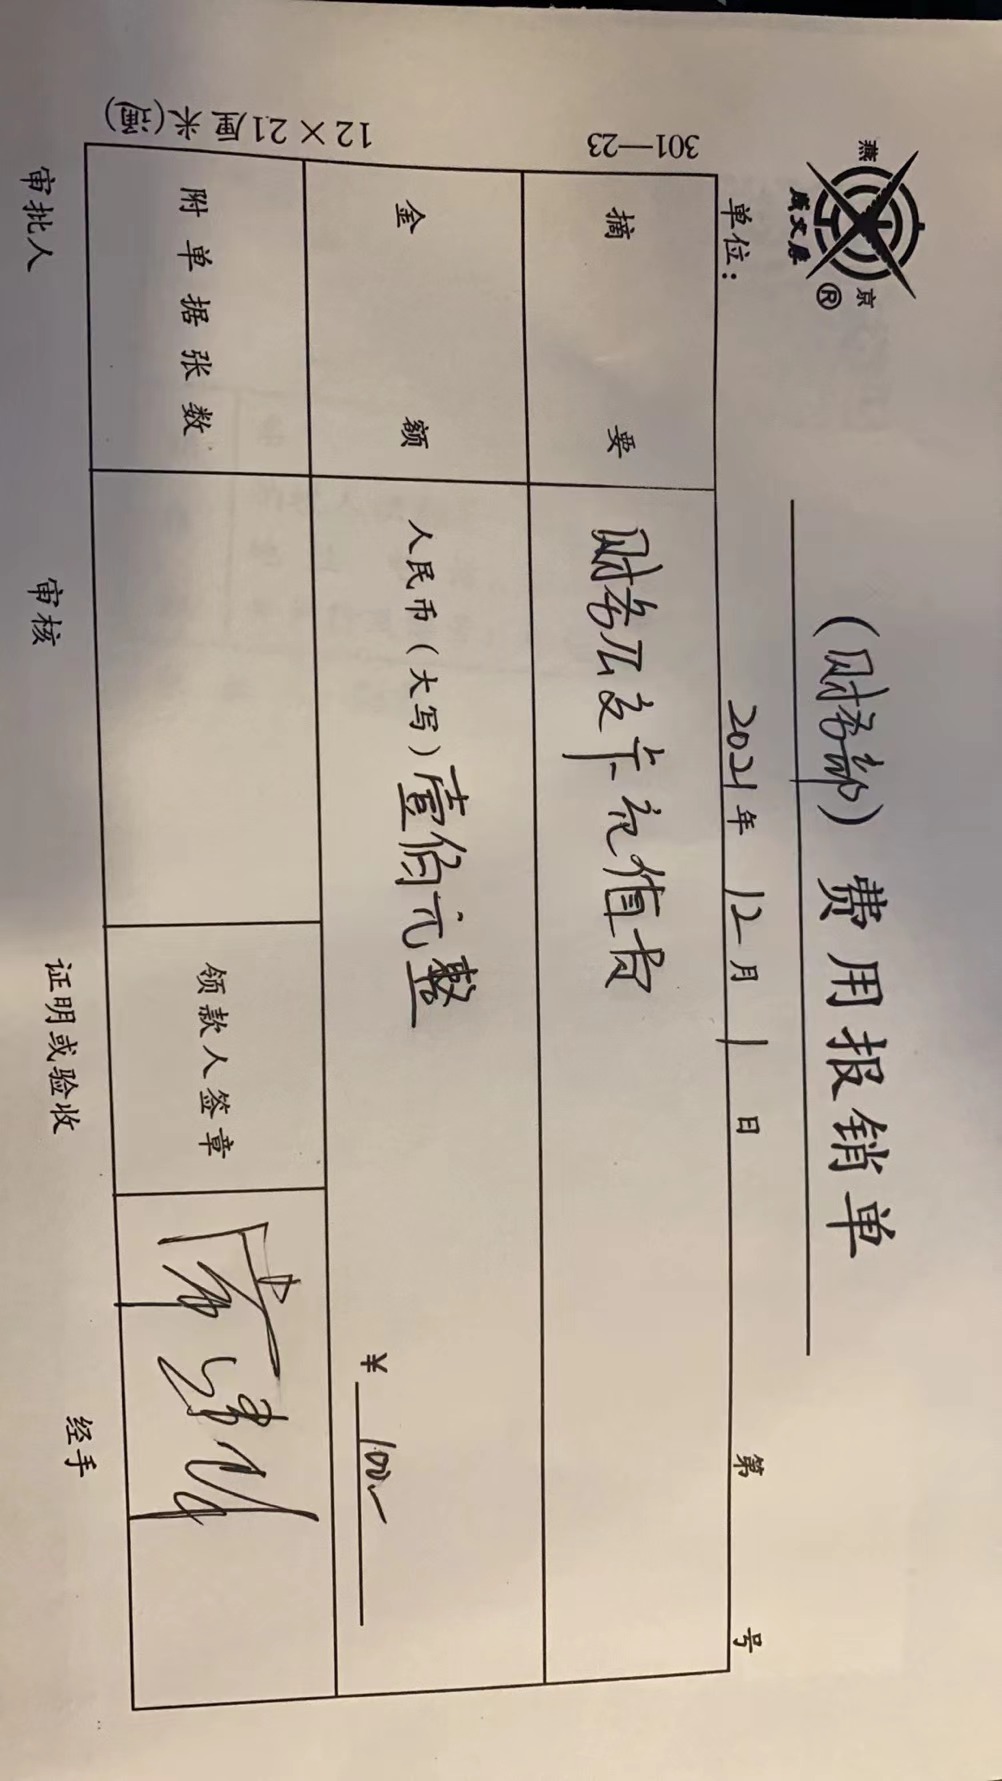 燕京
威文展®
(财务部)费用报销单
单位: 2021年12月1日 第 号
301—23
摘要 财务公交卡充值费
12×21厘米(通)
金额 人民币(大写)壹佰元整 ¥100.-
附单据张数 领款人签章
审批人 审核 证明或验收 经手